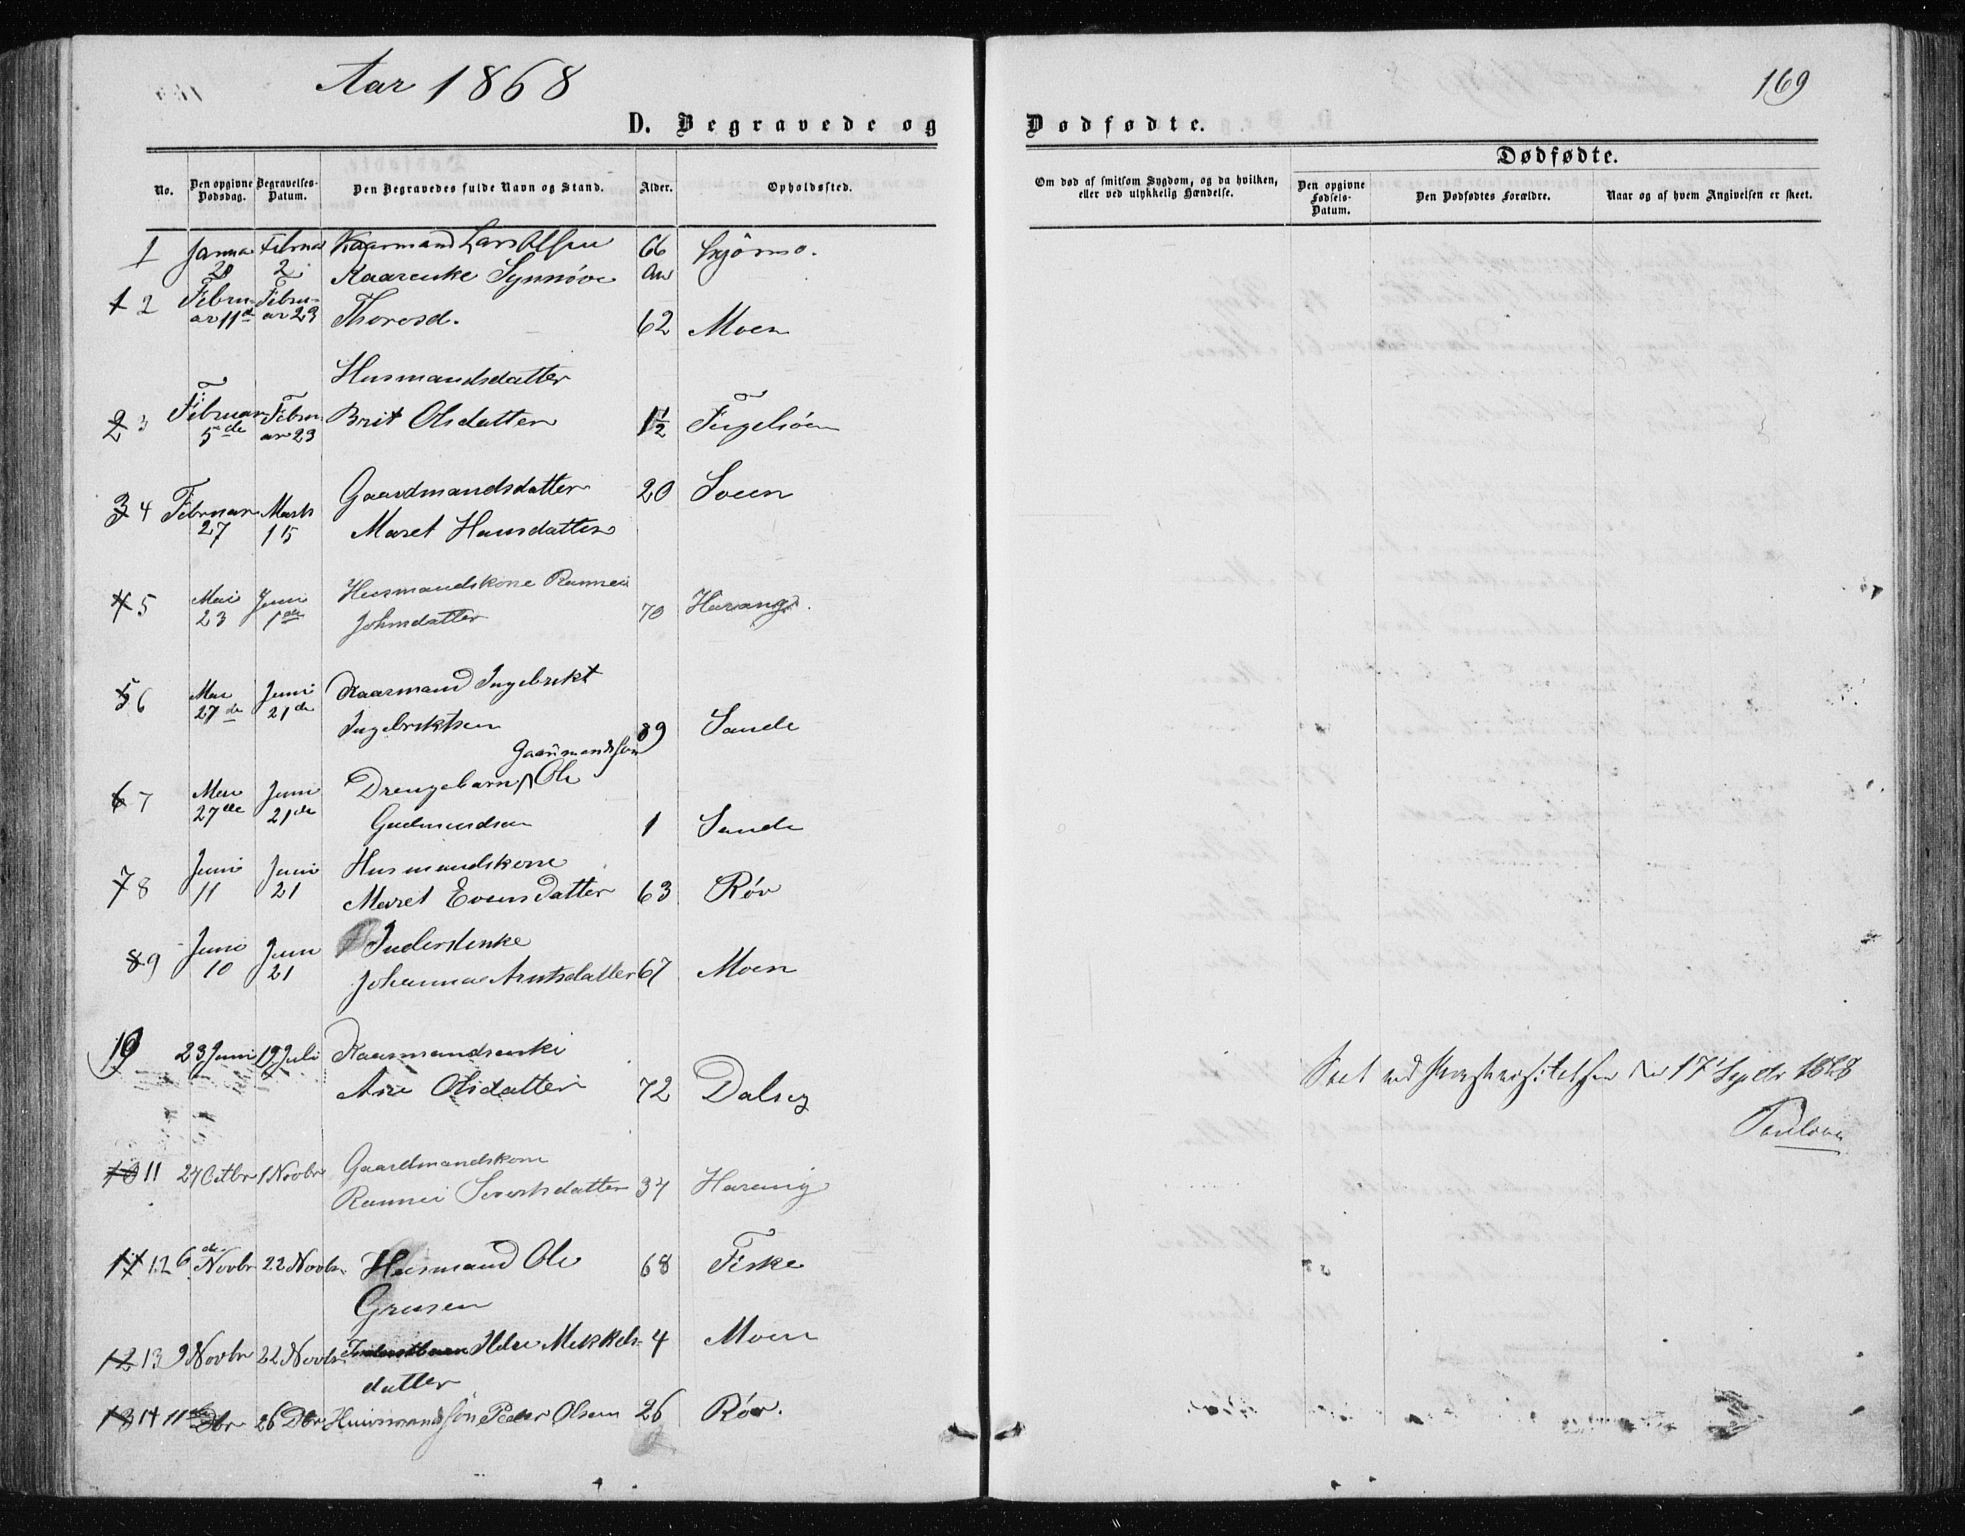 Aar 1868
169
D. Begravede og
Dødfødte.
No.
Den opgivne Dødsdag.
Begravelses-Datum.
Den Begravedes fulde Navn og Stand.
Alder.
Opholdssted.
Om død af smitsom Sygdom, og da hvilken, eller ved ulykkelig Hændelse.
Dødfødte.
Den opgivne Fødsels-Datum.
Den Dødfødtes Forældre.
Naar og af hvem Angivelsen er skeet.
1 Janua 20 Februa 2 Kaarmand Lars Olsen 66 Aar
Kaarenke Synnøve
1 2 Februar 11d Februar 23 Thoresd. 62 Moen
Husmandsdatter
2 3 Februar 5de Februar 23 Brit Olsdatter 1½ Fugelsøen
3 4 Februar 27 Marts 15 Gaardmandsdatter 20 Sveen
Maret Hansdatter
4 5 Mai 23 Juni 1de Husmandskone Rannei
Johnsdatter 70 Harang.
5 6 Mai 27de Juni 21de Kaarmand Ingebrikt
Ingebriktsen 89 Sande
Gaardmandssøn
6 7 Mai 27de Juni 21de Drengebarn Ole
Gudmundsen 1 Sande
7 8 Juni 11 Juni 21 Husmandskone
Maret Evensdatter 63 Røv
8 9 Juni 10 Juni 21 Inderstenke
Johanna Arntsdatter 67 Moen
10 23 Juni 19 Juli Kaarmandsenke
Ane Olsdatter 72 Dalseg
Seet ved Provstevisitatsen den 17 Septbr 1868
10 11 27 Octbr 1 Novbr Gaardmandskone
Rannei Sivertsdatter 34 Harang
11 12 6de Novbr 22 Novbr Husmand Ole 68 Fiske
Grusen
12 13 9 Novbr 22 Novbr Inderstbarn Ildri Mikkels- 4 Moen
datter
13 14 11de Dbr 26 Dbr Huusmandssøn Peder Olsen 26 Røv.